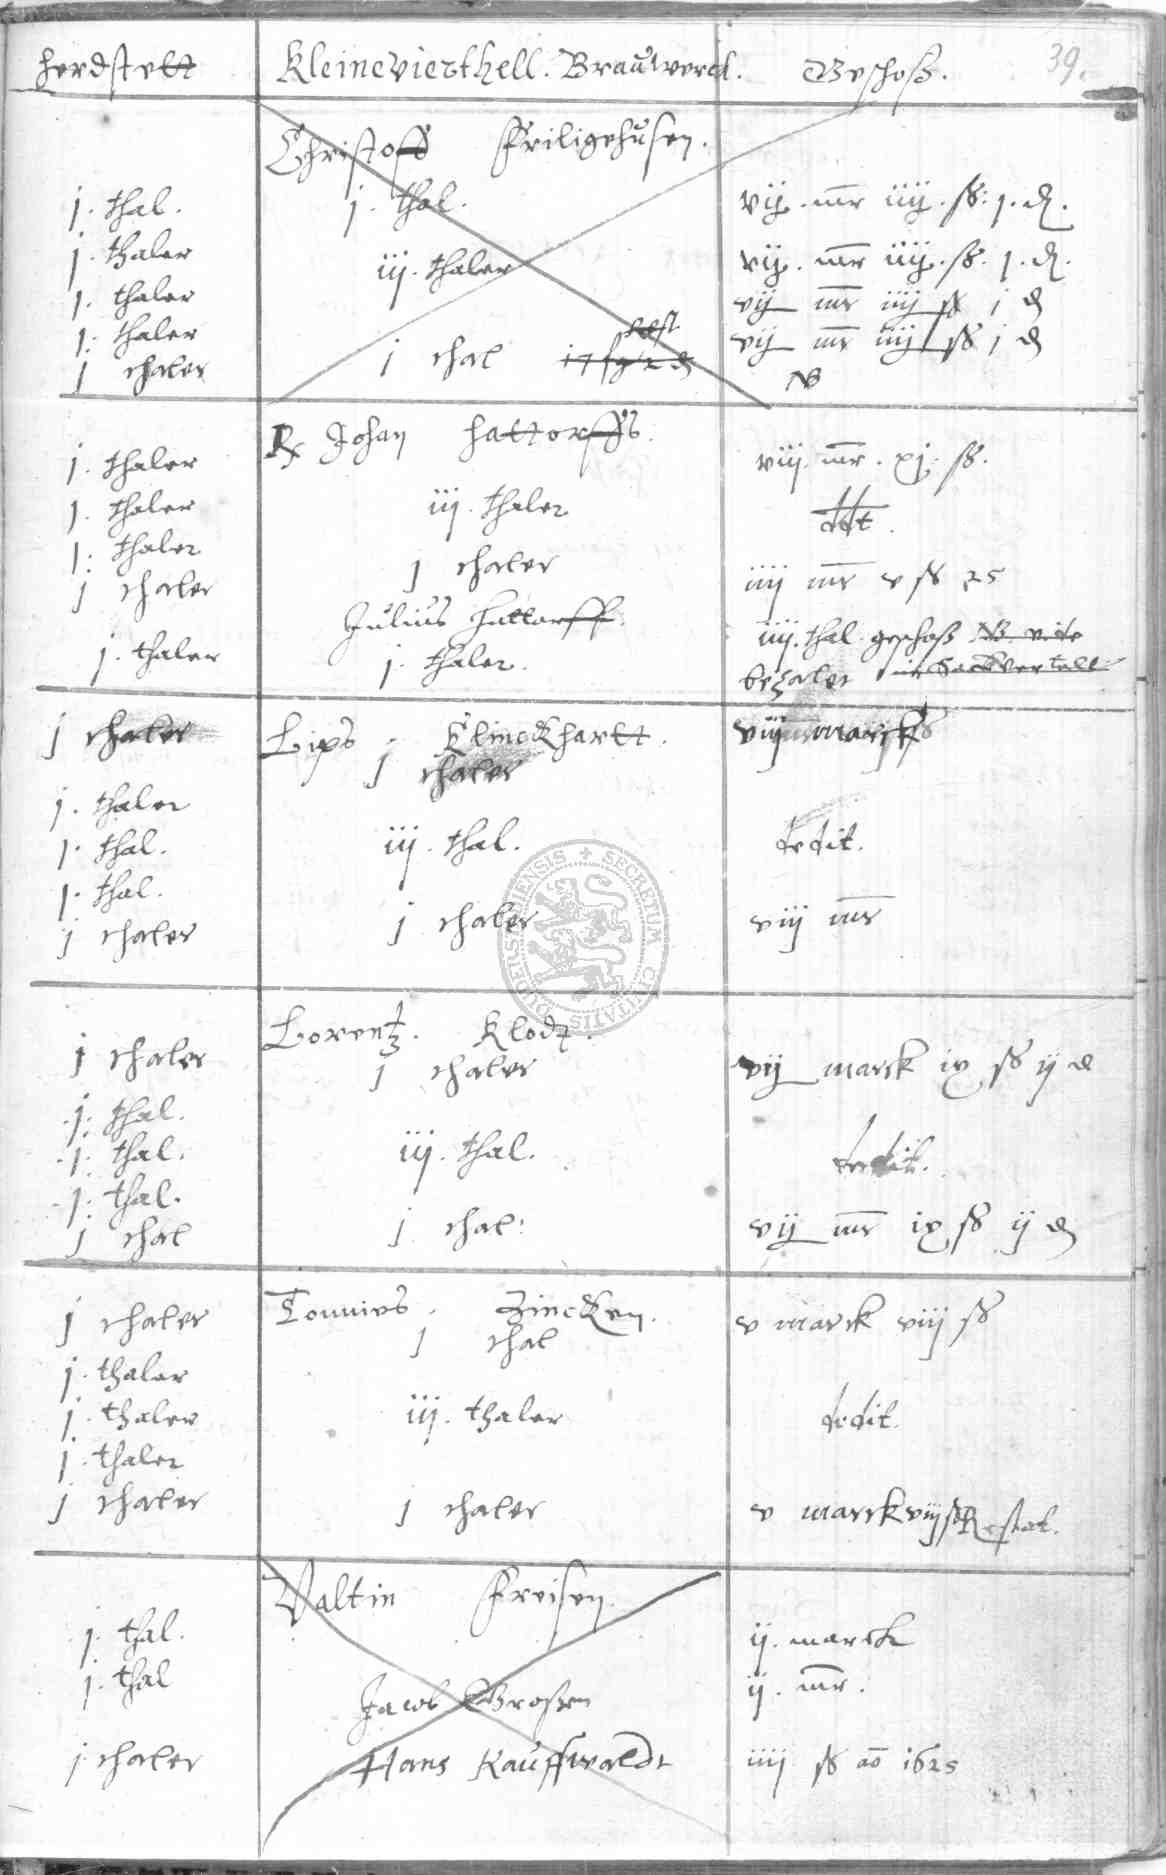 herdstett Kleinevierthell. Brauwerck. Geschoß. 39.
Christoff Friligehusen.
j. thal. j. thal. vij. mr iiij. ß. j. d.
j. thaler iij. thaler vij. mr iiij. ß. j. d.
j. thaler vij mr iiij ß j d
j. thaler j thal vij mr iiij ß j d
j thaler NB
Johan Hattorffs.
j. thaler viij. mr. xj. ß.
j. thaler iij. thaler ddt.
j. thaler j thaler
j thaler iiij mr v ß 25
Julius Hattorff.
j. thaler j. thaler. iiij. thal. geschoß NB vide
bezalet
j thaler Lips Clinckhartt. viij marck
j thaler
j. thaler
j. thal. iij. thal. dedit.
j. thal.
j thaler j thaler viij mr
Lorentz. Klodt.
j thaler j thaler vij marck ix ß ij d
j. thal.
j. thal. iij. thal. dedit.
j. thal.
j thal j thal: vij mr ix ß ij d
j thaler Tonnies. Zincken. v marck viij ß
j thal
j. thaler
j. thaler iij. thaler dedit.
j. thaler
j thaler j thaler v marck viij ß Restat.
Valtin Freisen.
j. thal. ij. marck
j. thal ij. mr.
Jacob Großen
j. thaler Hans Kauffwaldt iiij ß ao 1625
SECRETUM CIVITATIS